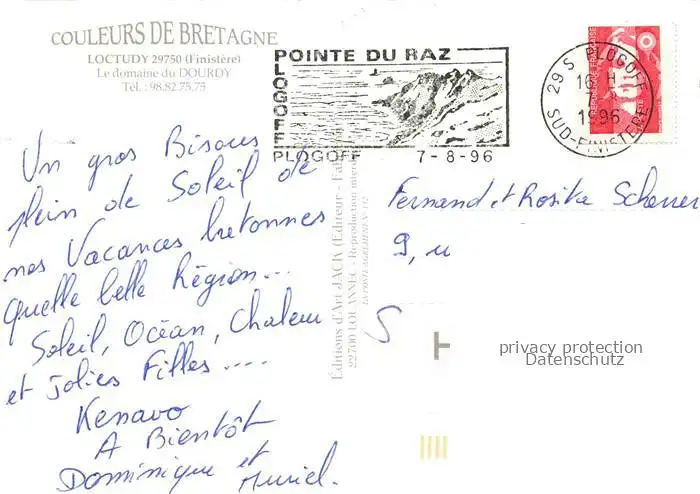 COULEURS DE BRETAGNE
LOCTUDY 29750 (Finistère)
Le domaine du DOURDY
Tél. : 98.82.75.75
POINTE DU RAZ
PLOGOFF
PLOGOFF 7-8-96
29 S PLOGOFF
16 H
1996
SUD-FINISTERE
REPUBLIQUE FRANÇAISE
Un gros Bisous
plein de Soleil de
nos Vacances bretonnes
quelle belle Région...
Soleil, Océan, Chaleur
et Jolies Filles....
Kenavo
A Bientôt
Dominique et
Muriel.
Editions d'Art JACK (Editeur
22700 LOUANNEC - Reproduction
Fernand et Rosita Scherrer
9, u
S
T
privacy protection
Datenschutz